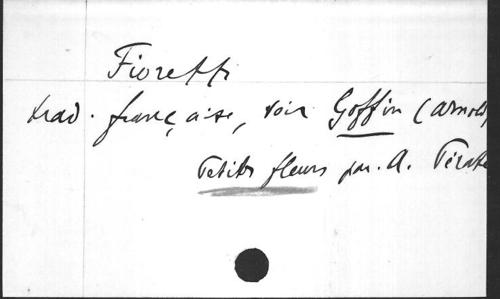 Fioretti
trad. française, voir Goffin (Arnold)
Petits fleurs par A.